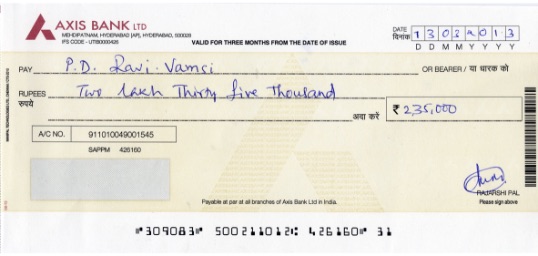 AXIS BANK LTD
MEHDIPATNAM, HYDERABAD [AP], HYDERABAD, 500028
IFS CODE - UTIB0000426
VALID FOR THREE MONTHS FROM THE DATE OF ISSUE
DATE
दिनांक 13022013
D D M M Y Y Y Y
PAY P.D. Ravi Vamsi OR BEARER / या धारक को
RUPEES Two Lakh Thirty five Thousand
रुपये अदा करें ₹ 235,000
A/C NO. 911010049001545
SAPPM 426160
RAJARSHI PAL
Payable at par at all branches of Axis Bank Ltd in India. Please sign above
⑈309083⑈ 500211012⑆ 426160⑈ 31